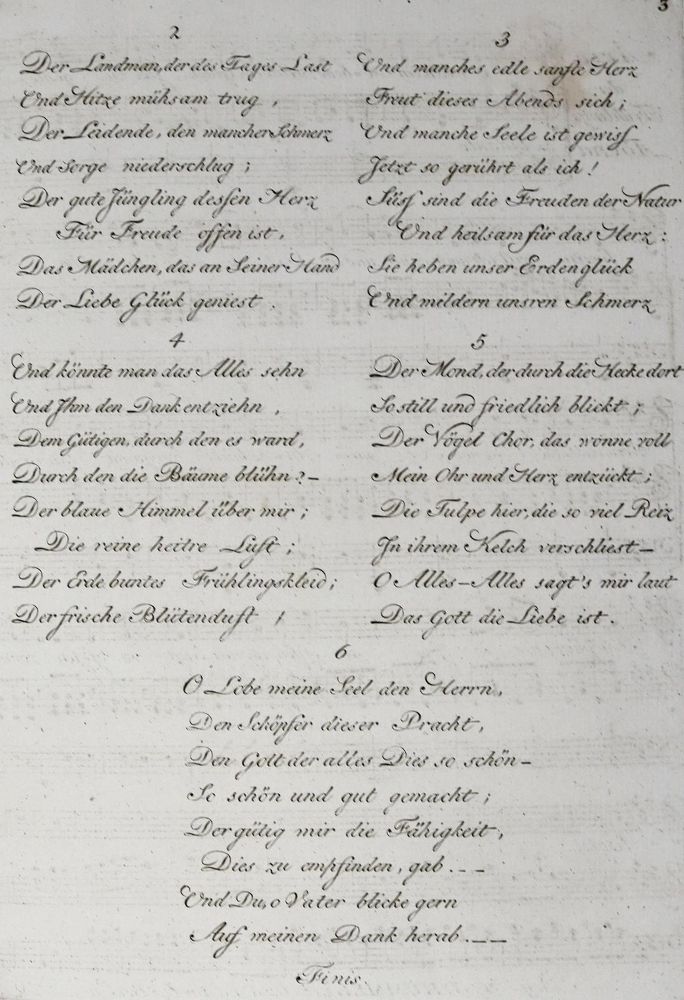 3
2
Der Landman, der des Tages Last
Und Hitze mühsam trug,
Der Leidende, den mancher Schmerz
Und Sorge niederschlug;
Der gute Jüngling dessen Herz
Für Freude offen ist,
Das Mädchen, das an Seiner Hand
Der Liebe Glück geniest.
3
Und manches edle sanfte Herz
Freut dieses Abends sich;
Und manche Seele ist gewiss
Jetzt so gerührt als ich!
Süss sind die Freuden der Natur
Und heilsam für das Herz:
Sie heben unser Erdenglück
Und mildern unsren Schmerz
4
Und könnte man das Alles sehn
Und Ihm den Dank entziehn,
Dem Gütigen, durch den es ward,
Durch den die Bäume blühn?–
Der blaue Himmel über mir;
Die reine heitre Luft;
Der Erde buntes Frühlingskleid;
Der frische Blütenduft !
5
Der Mond, der durch die Hecke dort
So still und friedlich blickt;
Der Vögel Chor, das wonne voll
Mein Ohr und Herz entzückt;
Die Tulpe hier, die so viel Reiz
In ihrem Kelch verschliest–
O Alles–Alles sagt's mir laut
Das Gott die Liebe ist.
6
O Lobe meine Seel den Herrn,
Den Schöpfer dieser Pracht,
Den Gott der alles Dies so schön–
So schön und gut gemacht;
Der gütig mir die Fähigkeit,
Dies zu empfinden, gab.––
Und Du, o Vater blicke gern
Auf meinen Dank herab.––
Finis.